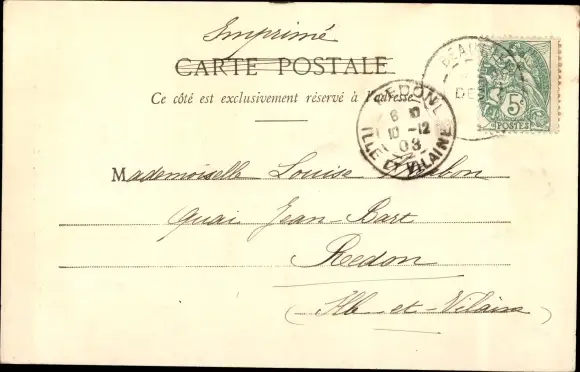 Imprimé
CARTE POSTALE
Ce côté est exclusivement réservé à l'adresse
REDON
6 10
10-12
03
ILLE ET VILAINE
BEAU
DE
5c
POSTES
Mademoiselle Louise
Quai Jean-Bart
Redon
(Ille-et-Vilaine)